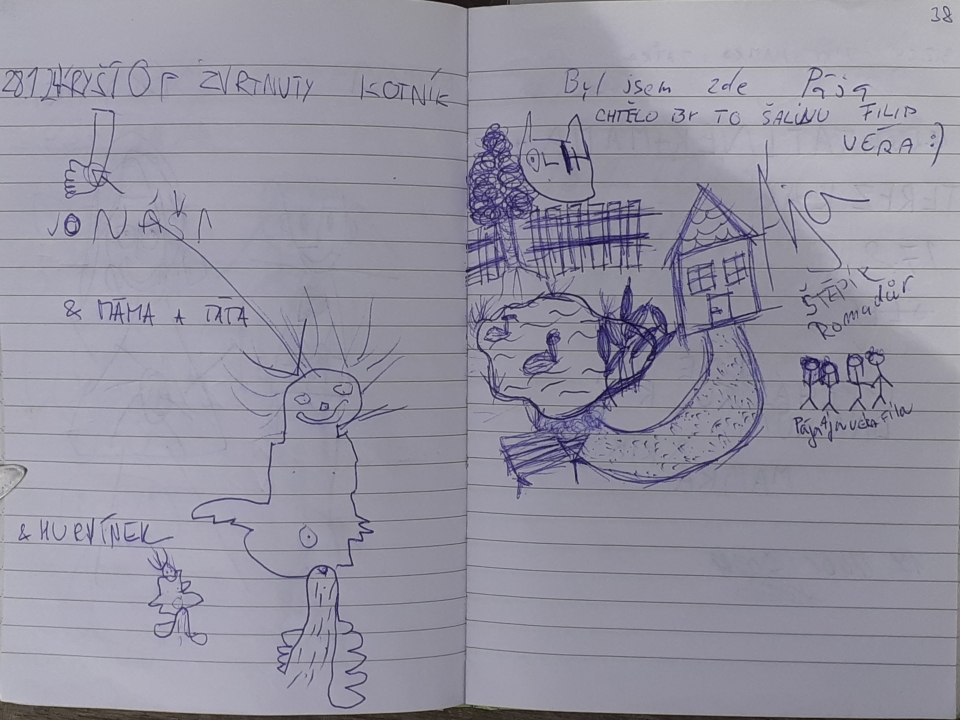 28.12. KRYŠTOF ZVRTNUTY KOTNÍK
JONÁŠ
& MÁMA A TÁTA
& HURVÍNEK
38
Byl jsem zde Pája
CHTĚLO BY TO ŠALINU FILIP
VĚRA :)
Ája
ŠTĚPÍK
Romadúr
Pája Ája Věra Fíla